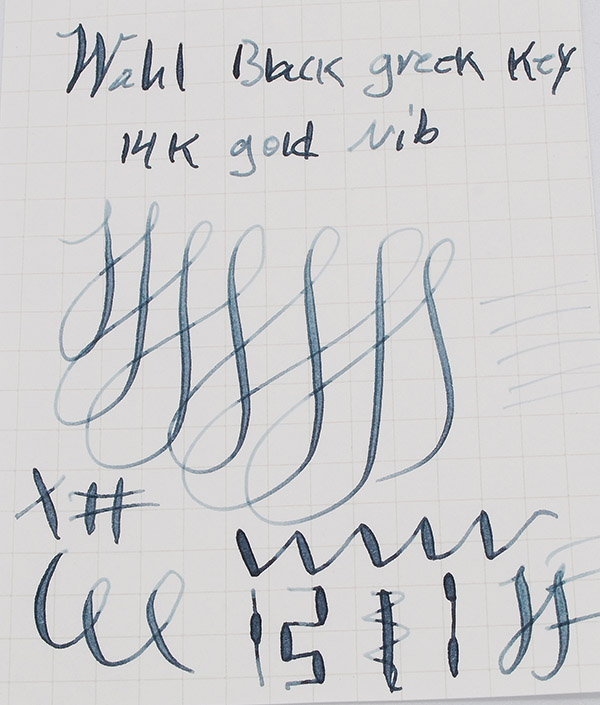 Wahl Black greek Key
14K gold nib